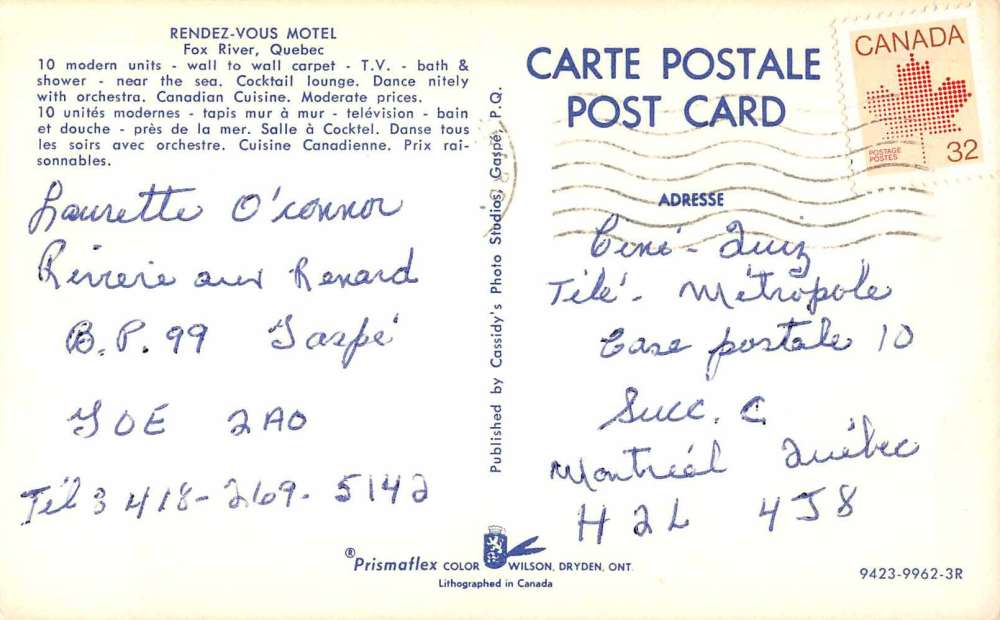 RENDEZ-VOUS MOTEL
Fox River, Quebec
10 modern units - wall to wall carpet - T.V. - bath &
shower - near the sea. Cocktail lounge. Dance nitely
with orchestra. Canadian Cuisine. Moderate prices.
10 unités modernes - tapis mur à mur - telévision - bain
et douche - près de la mer. Salle à Cocktel. Danse tous
les soirs avec orchestre. Cuisine Canadienne. Prix rai-
sonnables.
Laurette O'connor
Rivierie aux Renard
B.P. 99 Gaspé
GOE 2AO
Tél 3 418-269-5142
Published by Cassidy's Photo Studios, Gaspé, P.Q.
CARTE POSTALE
POST CARD
CANADA
POSTAGE
POSTES
32
ADRESSE
Ciné-Quiz
Télé-Métropole
Case postale 10
Succ. C
Montréal Québec
H2L 4J8
®Prismaflex COLOR WILSON, DRYDEN, ONT.
Lithographed in Canada
9423-9962-3R